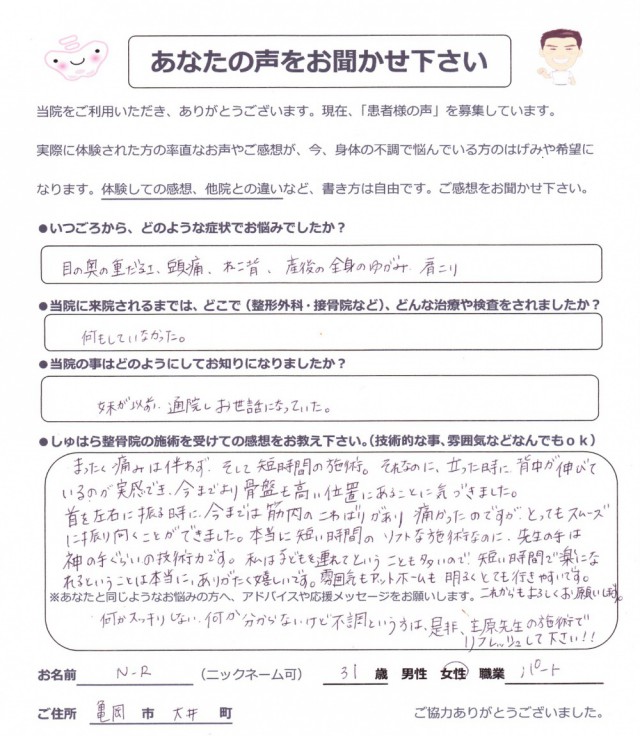 あなたの声をお聞かせ下さい
当院をご利用いただき、ありがとうございます。現在、「患者様の声」を募集しています。
実際に体験された方の率直なお声やご感想が、今、身体の不調で悩んでいる方のはげみや希望に
なります。体験しての感想、他院との違いなど、書き方は自由です。ご感想をお聞かせ下さい。
●いつごろから、どのような症状でお悩みでしたか？
目の奥の重だるさ、頭痛、ねこ背、産後の全身のゆがみ、肩こり
●当院に来院されるまでは、どこで（整形外科・接骨院など）、どんな治療や検査をされましたか？
何もしていなかった。
●当院の事はどのようにしてお知りになりましたか？
妹が以前、通院しお世話になっていた。
●しゅはら整骨院の施術を受けての感想をお教え下さい。（技術的な事、雰囲気などなんでもｏｋ）
まったく痛みは伴わず、そして短時間の施術。それなのに、立った時に背中が伸びて
いるのが実感でき、今までより骨盤も高い位置にあることに気づきました。
首を左右に振る時に、今までは筋肉のこわばりがあり痛かったのですが、とってもスムーズ
に振り向くことができました。本当に短い時間のソフトな施術なのに、先生の手は
神の手ぐらいの技術力です。私は子どもを連れてということも多いので、短い時間で楽にな
れるということは本当に、ありがたく嬉しいです。雰囲気もアットホームも明るくとても行きやすいです。
これからもよろしくお願いします。
※あなたと同じようなお悩みの方へ、アドバイスや応援メッセージをお願いします。
何かスッキリしない、何か分からないけど不調という方は、是非、主原先生の施術で
リフレッシュして下さい！！
お名前 N-R （ニックネーム可） 31 歳 男性 女性 職業 パート
ご住所 亀岡 市 大井 町 ご協力ありがとうございました。